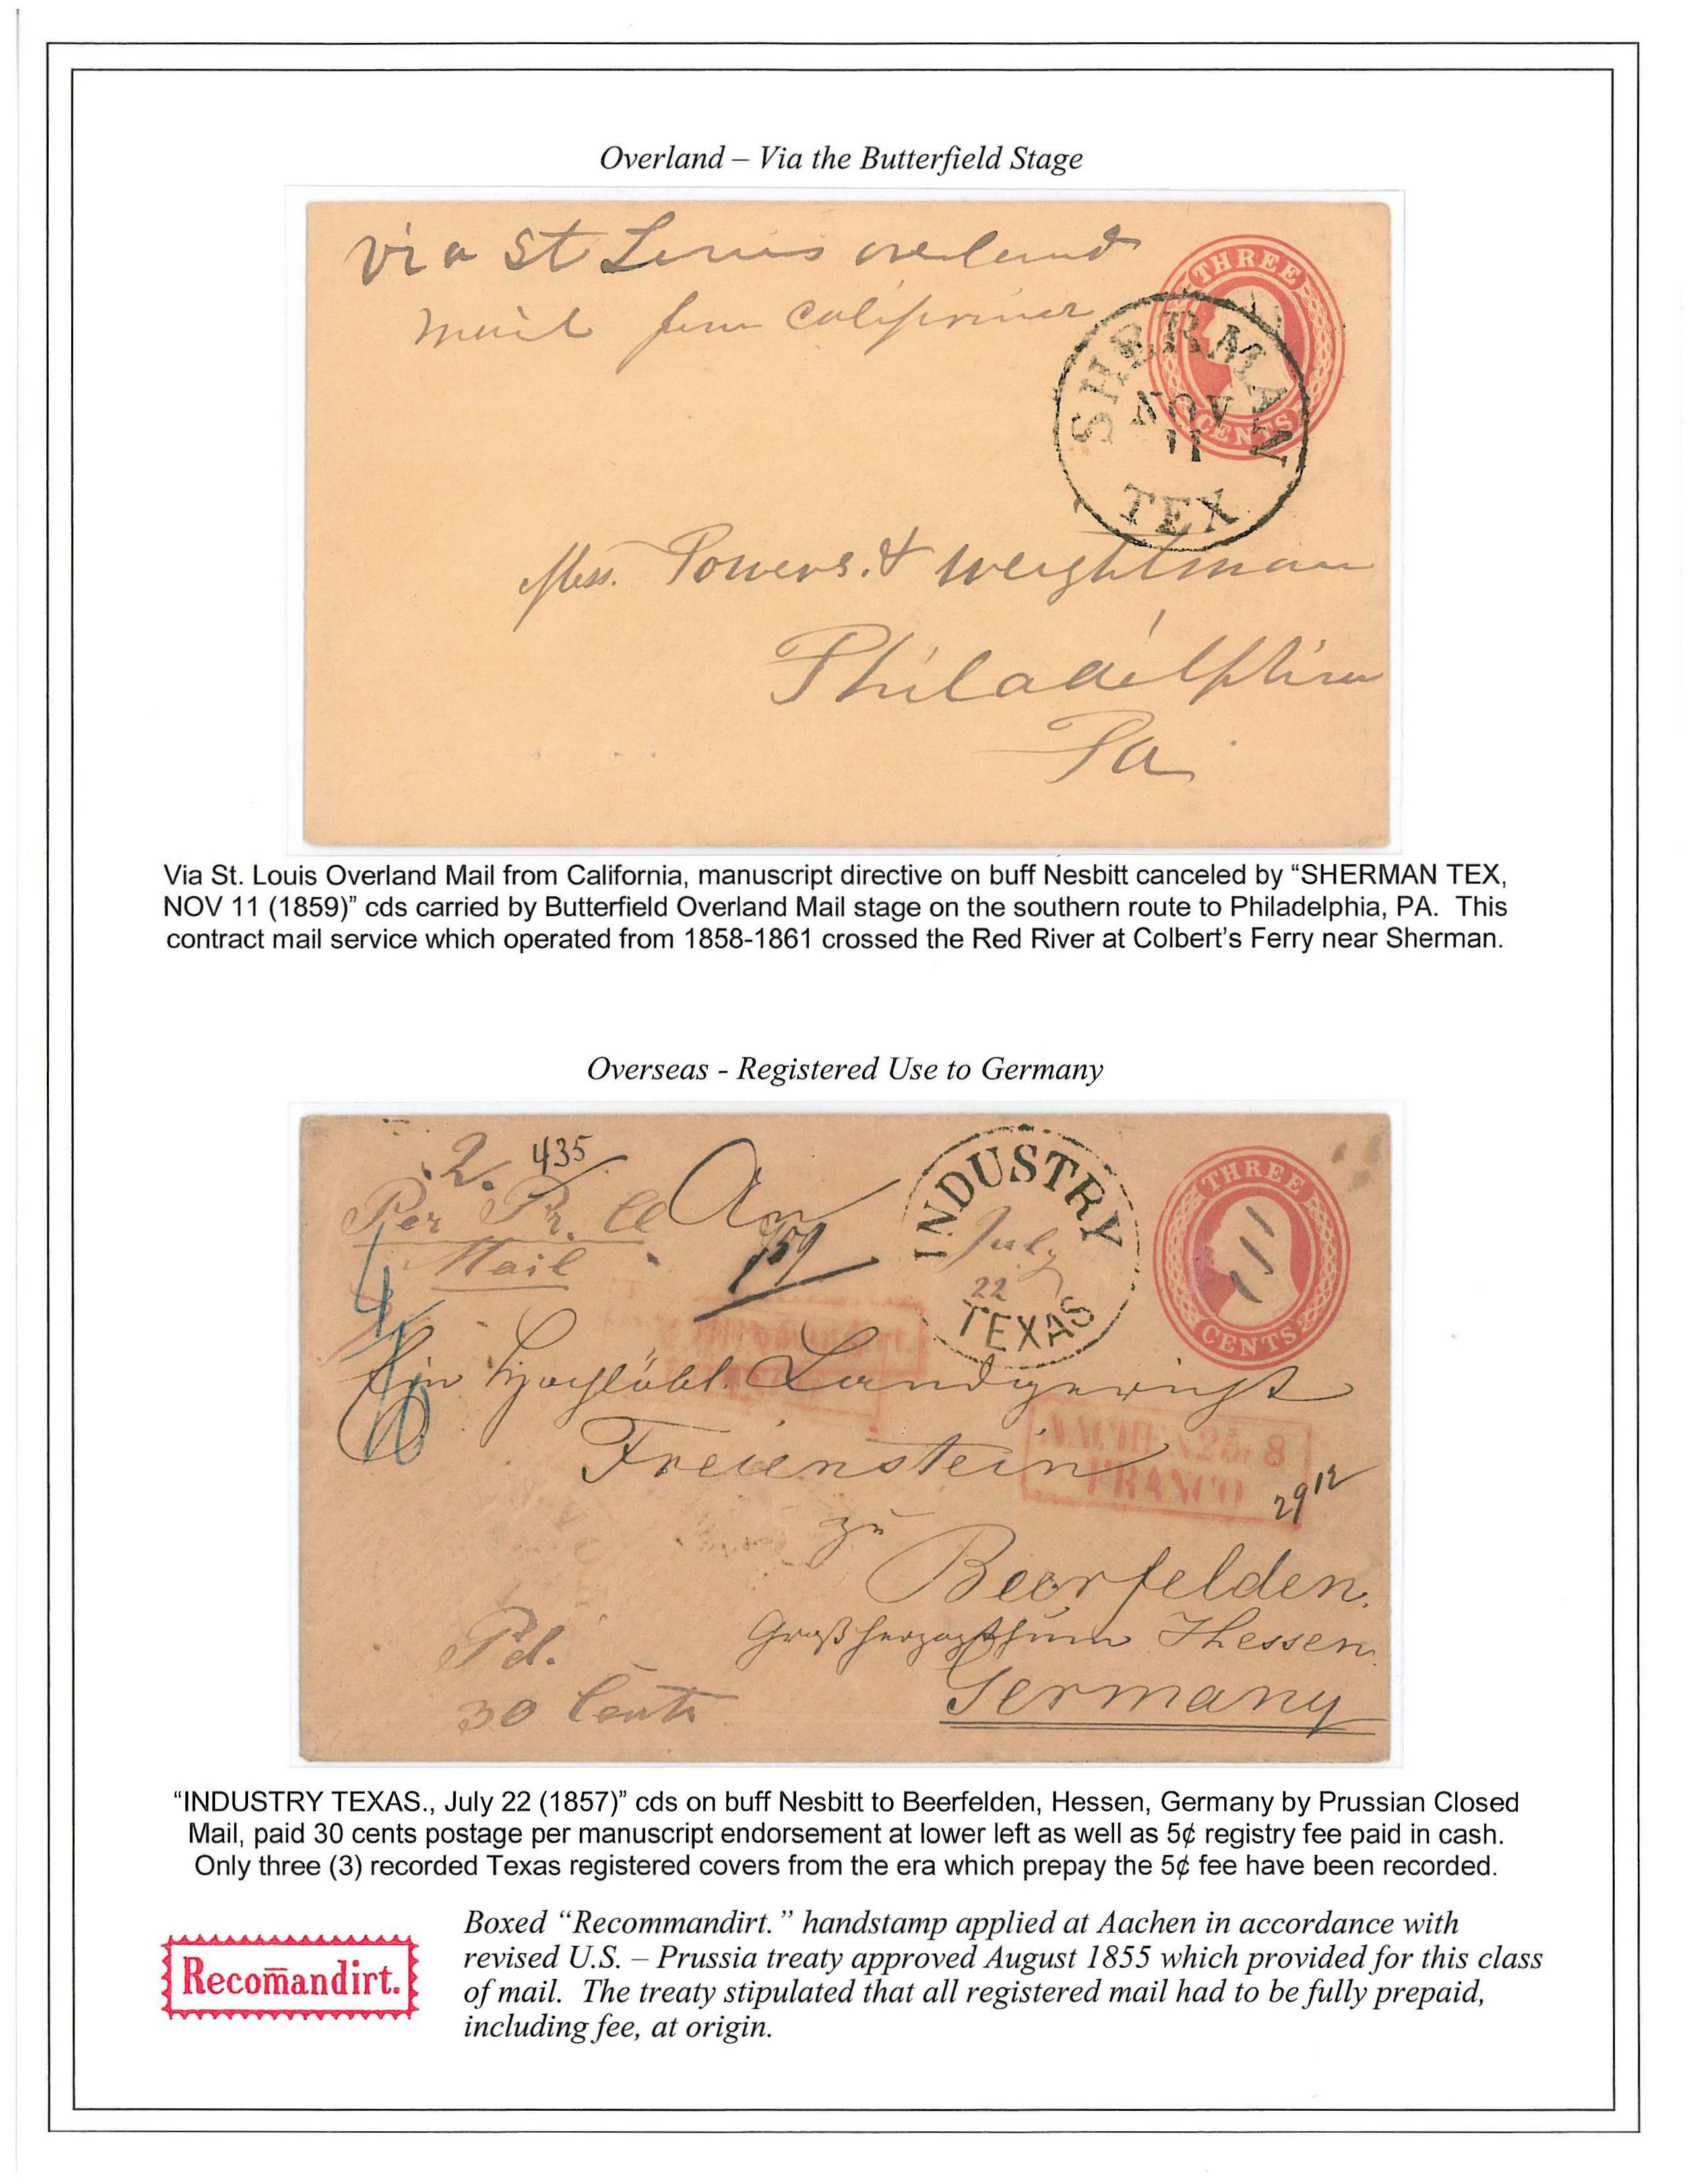 Overland – Via the Butterfield Stage
via St Louis overland
mail from California
THREE
CENTS
SHERMAN
NOV
11
TEX
Mess. Powers & Weightman
Philadelphia
Pa
Via St. Louis Overland Mail from California, manuscript directive on buff Nesbitt canceled by “SHERMAN TEX,
NOV 11 (1859)” cds carried by Butterfield Overland Mail stage on the southern route to Philadelphia, PA. This
contract mail service which operated from 1858-1861 crossed the Red River at Colbert’s Ferry near Sherman.
Overseas - Registered Use to Germany
2.
435
Per Pr. Cl
Mail
An
INDUSTRY
July
22
TEXAS
THREE
CENTS
Ein Hochlöbl. Landgericht
Freienstein
AACHEN 25 8
FRANCO
29 12
zu
Beerfelden.
Großherzogthum Hessen.
Germany
Pd.
30 Cents
“INDUSTRY TEXAS., July 22 (1857)” cds on buff Nesbitt to Beerfelden, Hessen, Germany by Prussian Closed
Mail, paid 30 cents postage per manuscript endorsement at lower left as well as 5¢ registry fee paid in cash.
Only three (3) recorded Texas registered covers from the era which prepay the 5¢ fee have been recorded.
Recom̅andirt.
Boxed “Recommandirt.” handstamp applied at Aachen in accordance with
revised U.S. – Prussia treaty approved August 1855 which provided for this class
of mail. The treaty stipulated that all registered mail had to be fully prepaid,
including fee, at origin.